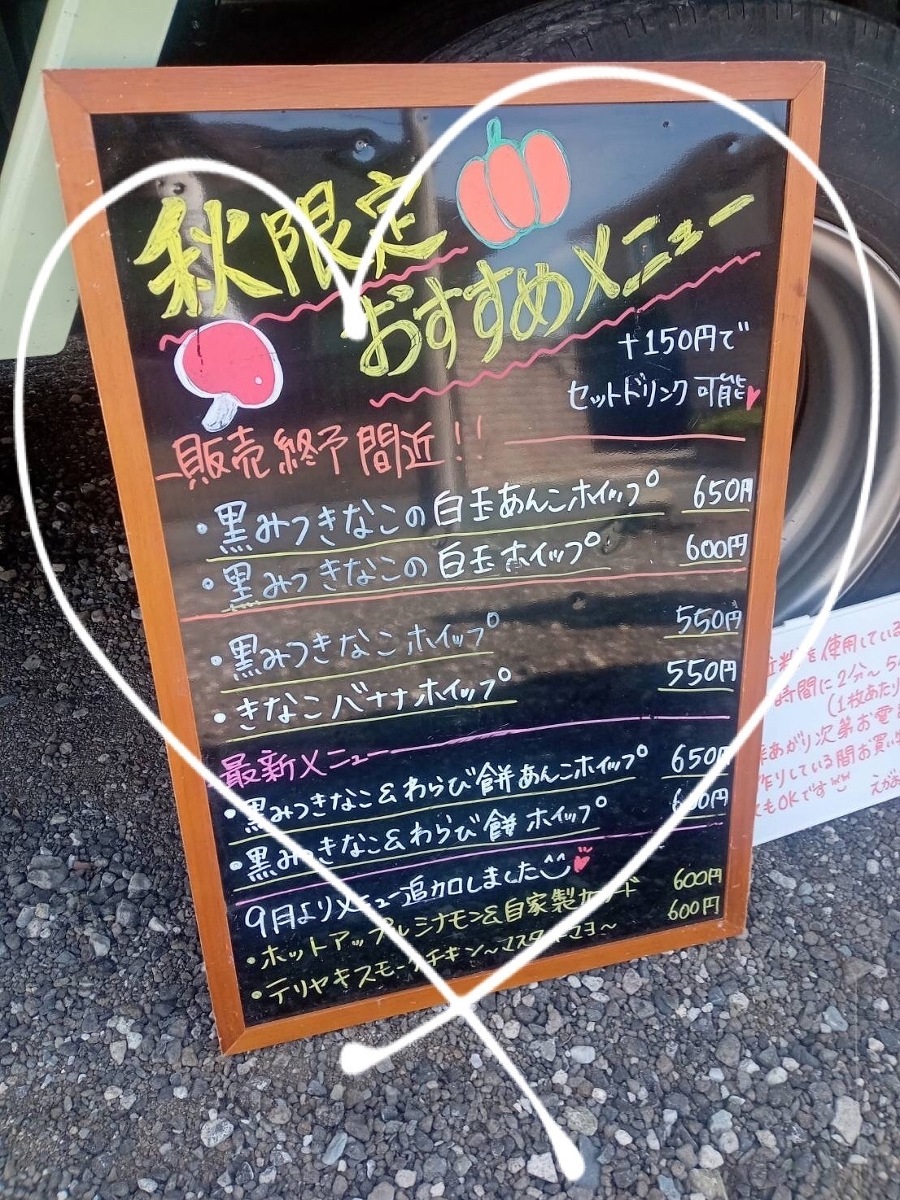 秋限定
おすすめメニュー
+150円で
セットドリンク可能
販売終予間近!!
・黒みつきなこの白玉あんこホイップ 650円
・黒みつきなこの白玉ホイップ 600円
・黒みつきなこホイップ 550円
・きなこバナナホイップ 550円
最新メニュー
・黒みつきなこ&わらび餅あんこホイップ 650円
・黒みつきなこ&わらび餅ホイップ 600円
9月よりメニュー追加しました
・ホットアップルシナモン&自家製カスタード 600円
・テリヤキスモークチキン〜マスタードマヨ〜 600円
を使用している
時間に2分〜5
(1枚あたり
あがり次第お電
作りしている間お買い
もOKです